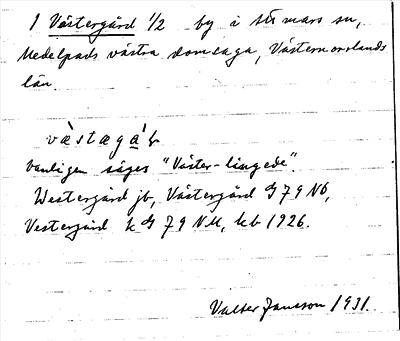 1 Västergård 1/2 by i Attmars sn,
Medelpads västra domsaga, Västernorrlands
län.
västæga
Vanligen säges "Väster-Lingede".
Westergård jb, Västergård G79 NÖ,
Vestergård k G79 NM, kb 1926.
Valter Jansson 1931.